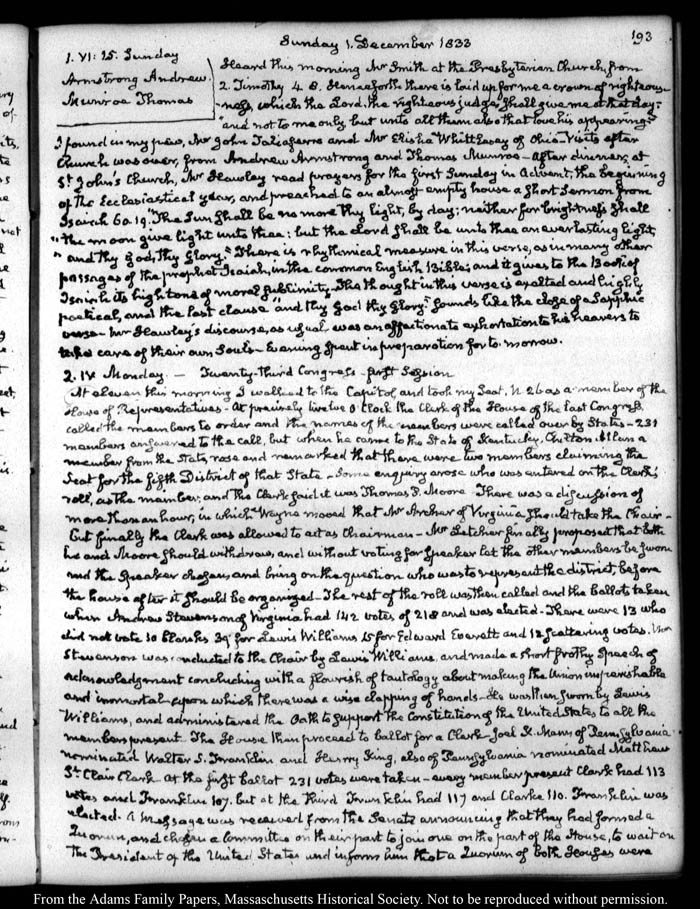 193
Sunday 1. December 1833
1. VI: 15. Sunday
Armstrong Andrew
Munroe Thomas
Heard this morning Mr Smith at the Presbyterian Church, from
2. Timothy 4 8. Henceforth there is laid up for me a crown of righteous-
ness, which the Lord, the righteous judge, shall give me at that day:
"and not to me only but unto all them also that love his appearing."
I found in my pew, Mr John Taliaferro and Mr Elisha Whittlesey of Ohio. Visits after
Church was over, from Andrew Armstrong and Thomas Munroe—After dinner, at
St John's Church, Mr Hawley read prayers for the first Sunday in Advent, the beginning
of the Ecclesiastical year, and preached to an almost empty house a short Sermon from
Isaiah 60. 19. "The Sun shall be no more thy light, by day; neither for brightness shall
"the moon give light unto thee: but the Lord shall be unto thee an everlasting light,
"and thy God, thy Glory." There is rhythmical measure in this verse, as in many other
passages of the prophet Isaiah, in the common English Bible; and it gives to the Book of
Isaiah its high tone of moral sublimity. The thought in this verse is exalted and highly
poetical, and the last clause "and thy God thy Glory" sounds like the close of a Sapphic
verse—Mr Hawley's discourse, as usual was an affectionate exhortation to his hearers to
take care of their own Souls—Evening spent in preparation for to-morrow.
2. IV Monday — Twenty-third Congress—first Session
At eleven this morning I walked to the Capitol, and took my Seat, N. 26 as a member of the
House of Representatives—At precisely twelve O'Clock the Clerk of the House of the last Congress,
called the members to order and the names of the members were called over by States—231
members answered to the call, but when he came to the State of Kentucky, Chilton Allen a
member from the State, rose and remarked that there were two members claiming the
Seat for the fifth District of that State—Some enquiry arose who was entered on the Clerk's
roll, as the member; and the Clerk said it was Thomas P. Moore. There was a discussion of
more than an hour, in which Wayne moved that Mr Archer of Virginia should take the Chair—
But finally the Clerk was allowed to act as Chairman—Mr Letcher finally proposed that both
he and Moore should withdraw, and without voting for Speaker let the other members be sworn
and the Speaker chosen, and bring on the question who was to represent the district, before
the house after it should be organized—The rest of the roll was then called and the ballots taken
when Andrew Stevenson of Virginia had 142 votes of 218 and was elected—There were 13 who
did not vote 10 blanks 39 for Lewis Williams 15 for Edward Everett and 12 scattering votes.
Stevenson was conducted to the Chair by Lewis Williams, and made a short frothy speech of
acknowledgment concluding with a flourish of tautology about making the Union imperishable
and immortal—upon which there was a wise clapping of hands—He was then sworn by Lewis
Williams, and administered the Oath to support the Constitution of the United States to all the
members present. The House then proceed to ballot for a Clerk—Joel K. Mann of Pennsylvania
nominated Walter S. Franklin and Henry King, also of Pennsylvania nominated Matthew
St Clair Clark—At the first ballot 231 votes were taken—every member present Clark had 113
votes and Franklin 107. but at the third Franklin had 117 and Clarke 110. Franklin was
elected. A Message was received from the Senate announcing that they had formed a
Quorum, and chosen a Committee on their part to join one on the part of the House, to wait on
the President of the United States and inform him that a Quorum of both Houses were
From the Adams Family Papers, Massachusetts Historical Society. Not to be reproduced without permission.